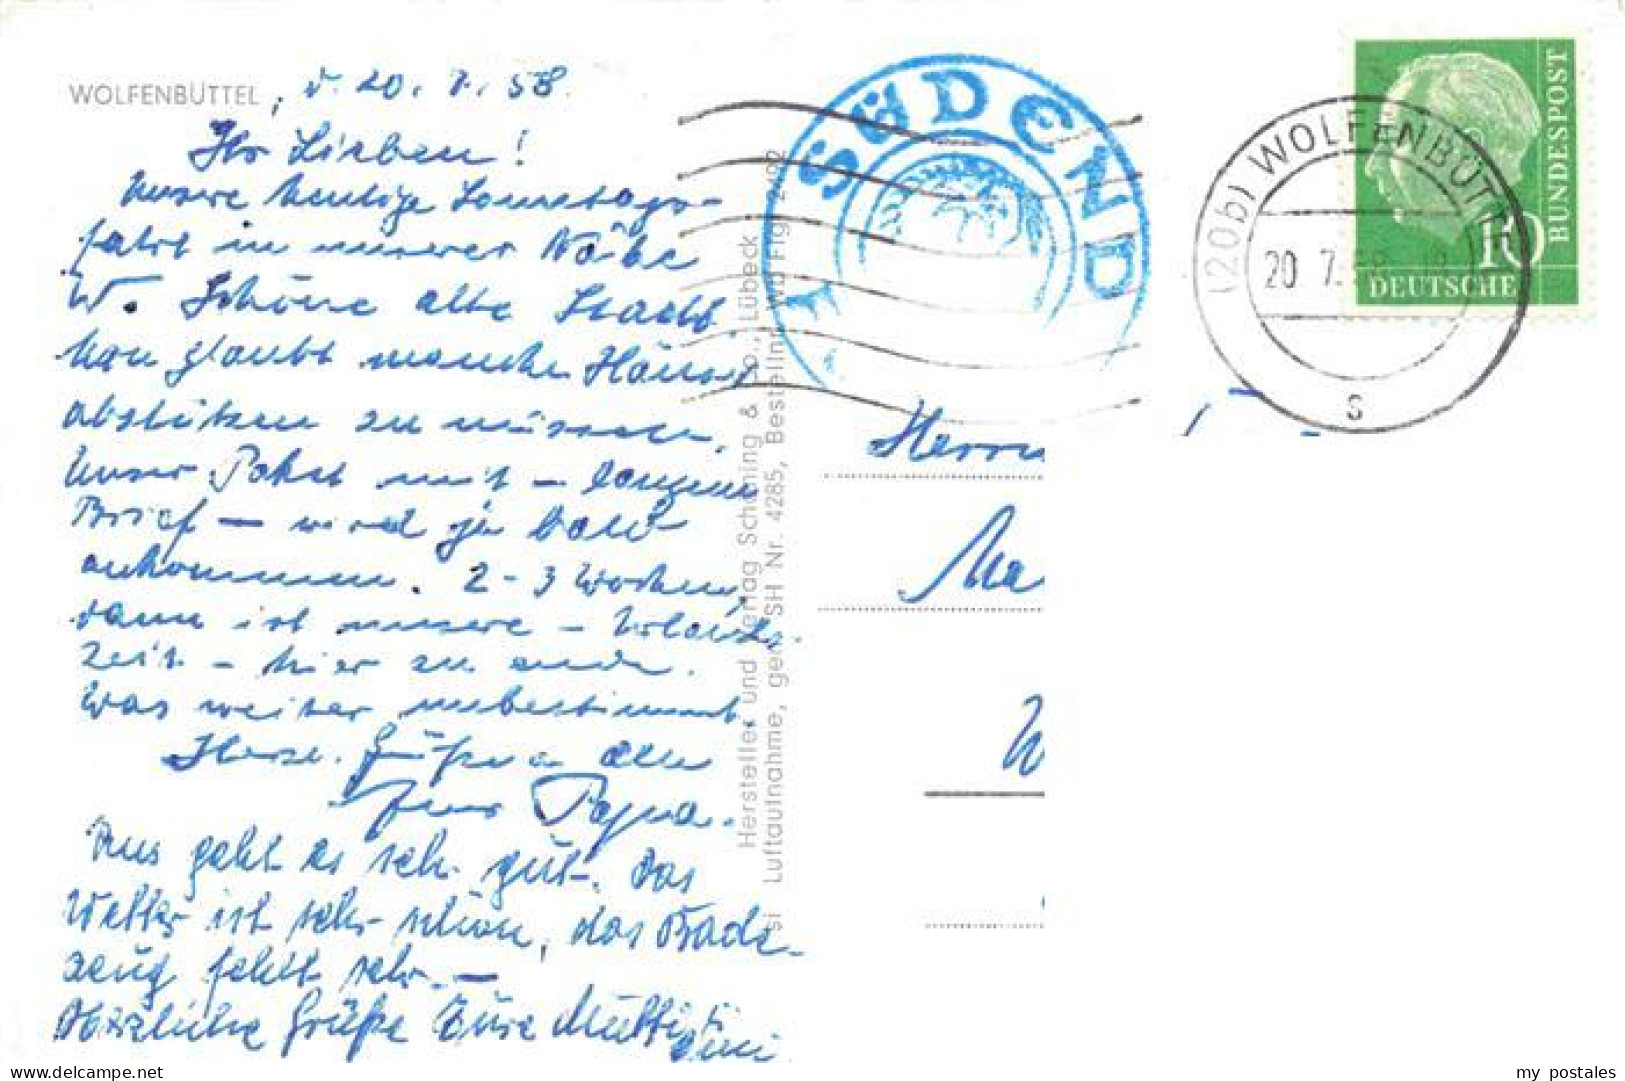 WOLFENBÜTTEL, d. 20. 7. 58.
Ihr Lieben!
Unsere heutige Sonntags-
fahrt in unserer Nähe
W. Schöne alte Stadt.
Man glaubt manche Häuser
abstützen zu müssen.
Unser Paket mit – langem
Brief – wird ja bald
ankommen. 2 - 3 Wochen,
dann ist unsere – Urlaubs-
zeit – hier zu ende.
Was weiter unbestimmt.
Herzl. Grüße allen
Euer Papa.
Uns geht es sehr gut. Das
Wetter ist sehr schön, das Bade-
zeug fehlt sehr. –
Herzliche Grüße Eure Mutti
Hersteller und Verlag Schöning & Co., Lübeck
Luftaufnahme, gen. SH Nr. 4285, Bestellnr. Wb Flg
SÜDEND
(20b) WOLFENBÜTTEL
20 7. 58
s
DEUTSCHE
BUNDESPOST
10
Herrn
Ma
W
my postales